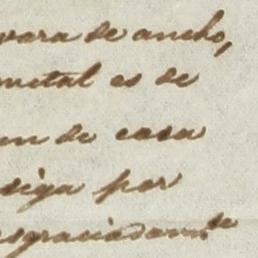 vara de ancho,
metal es de
un de casa
siga por
sgraciadamte